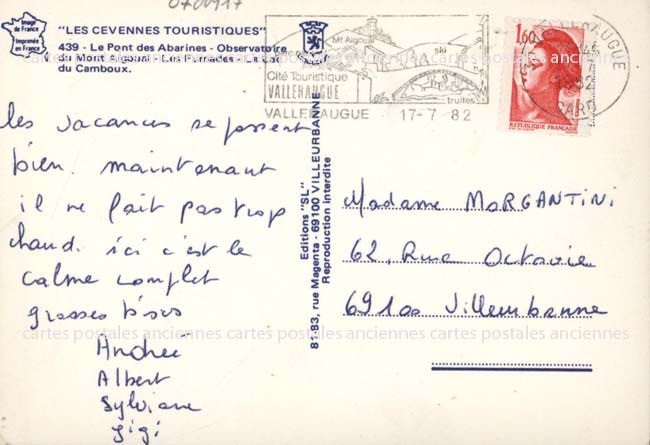 0700917
Image
de France
Imprimée
en France
"LES CEVENNES TOURISTIQUES"
439 - Le Pont des Abarines - Observatoire
du Mont Aigoual - Les Fumades - Le Lac
du Camboux.
Mt Aigoual
ski
Cité Touristique
VALLERAUGUE
truites
VALLERAUGUE 17-7 82
VALLERAUGUE
GARD
1,60
REPUBLIQUE FRANÇAISE
les vacances se passent
bien. maintenant
il ne fait pas trop
chaud. ici c'est le
calme complet
grosses bises
Andrée
Albert
Sylviane
gigi
Editions "SL"
81-83, rue Magenta - 69100 VILLEURBANNE
Reproduction interdite
Madame MORGANTINI
62, Rue Octavie
69100 Villeurbanne
cartes postales anciennes cartes postales anciennes cartes postales anciennes